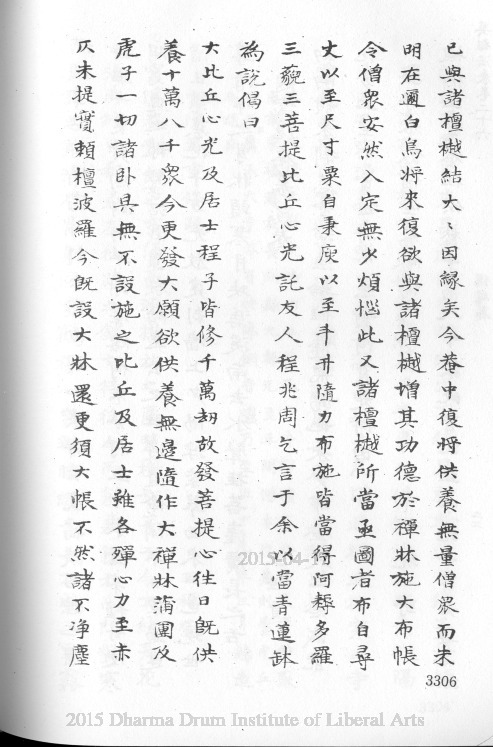 已與諸檀樾結大〻因緣矣今菴中復將供養無量僧眾而朱
明在邇白鳥將來復欲與諸檀樾增其功德於禪牀施大布帳
令僧眾安然入定無少煩惱此又諸檀樾所當亟圖者布自尋
丈以至尺寸粟自秉庾以至斗升隨力布施皆當得阿耨多羅
三藐三菩提比丘心光託友人程兆周乞言于余以當青蓮缽
為說偈曰
大比丘心光及居士程子皆修千萬劫故發菩提心往日既供
養十萬八千眾今更發大願欲供養無邊隨作大禪牀蒲團及
虎子一切諸卧具無不設施之比丘及居士雖各殫心力至赤
仄未提寶賴檀波羅今既設大牀還更須大帳不然諸不净塵
3306
2015-04-1
2015 Dharma Drum Institute of Liberal Arts